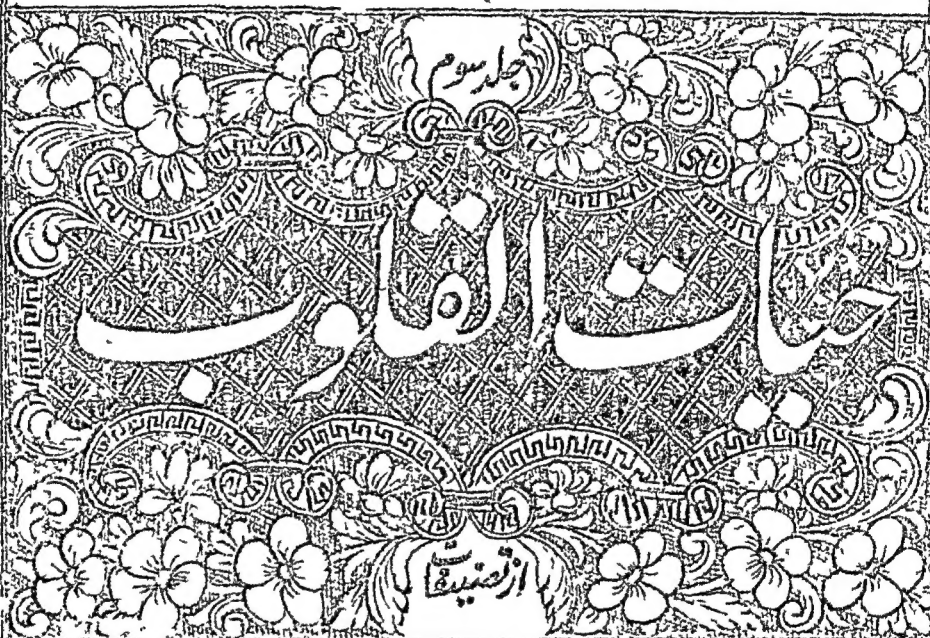 جلد سوم
حیات القلوب
از تصنیفات